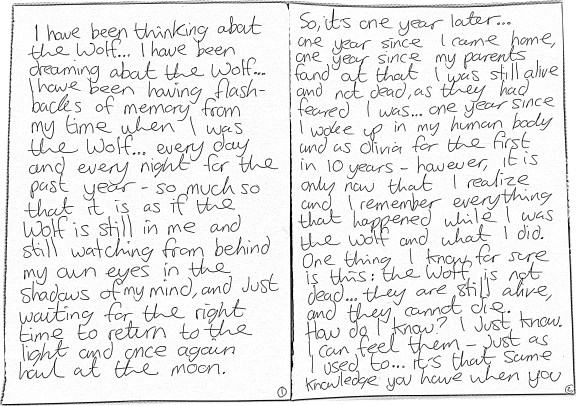 I have been thinking about
the Wolf... I have been
dreaming about the Wolf...
I have been having flash-
backs of memory from
my time when I was
the Wolf... every day
and every night for the
past year - so much so
that it is as if the
Wolf is still in me and
still watching from behind
my own eyes in the
shadows of my mind, and just
waiting for the right
time to return to the
light and once again
howl at the moon.
1
So, it's one year later...
one year since I came home,
one year since my parents
found out that I was still alive
and not dead, as they had
feared I was... one year since
I woke up in my human body
and as Olivia for the first
in 10 years - however, it is
only now that I realize
and I remember everything
that happened while I was
the Wolf and what I did.
One thing I know for sure
is this: the Wolf is not
dead... they are still alive,
and they cannot die.
How do I know? I just know.
I can feel them - just as
I used to... it's that same
knowledge you have when you
2